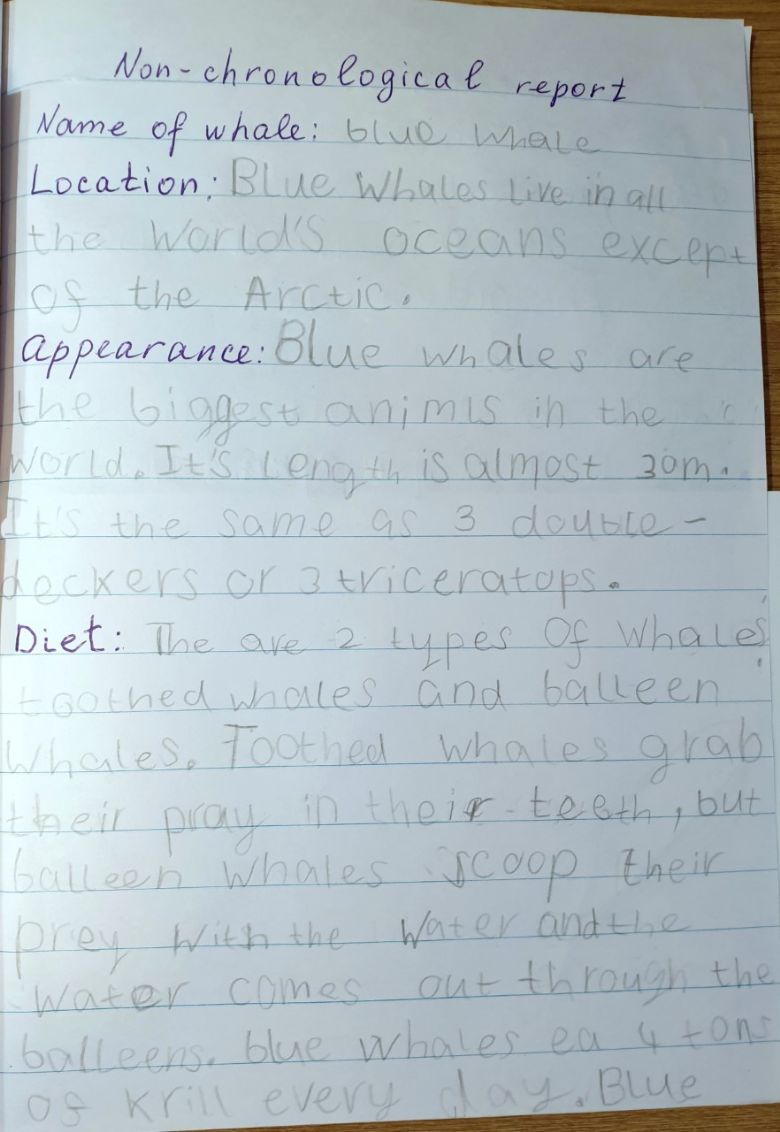 Non-chronological report
Name of whale: blue whale
Location: Blue whales live in all
the world's oceans except
of the Arctic.
Appearance: Blue whales are
the biggest animls in the
world. It's length is almost 30m.
It's the same as 3 double-
deckers or 3 triceratops.
Diet: The are 2 types of whales:
toothed whales and balleen
whales. Toothed whales grab
their pray in their teeth, but
balleen whales scoop their
prey with the water and the
water comes out through the
balleens. blue whales ea 4 tons
of krill every day. Blue